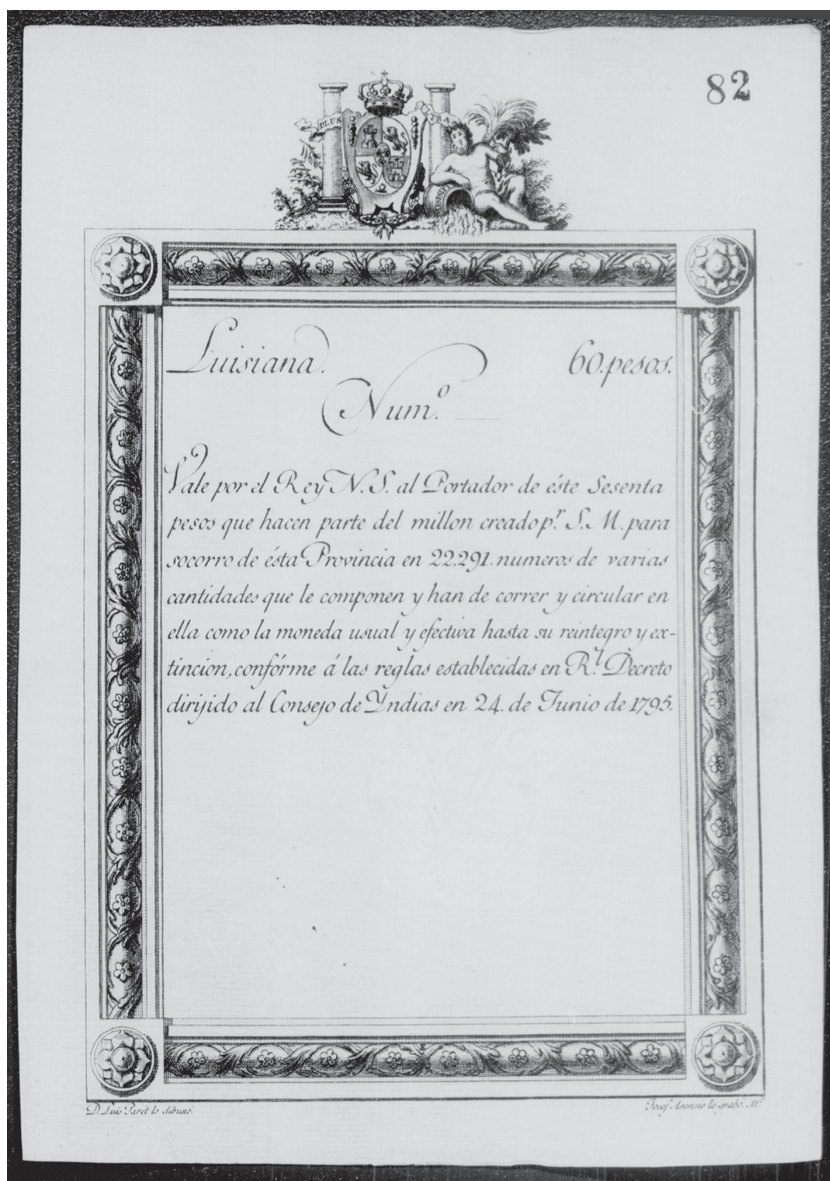 82
PLUS ULTRA
Luisiana. 60.pesos.
Num.º
Vale por el Rey N.S. al Portador de éste Sesenta
pesos que hacen parte del millon creado p.r S.M. para
socorro de ésta Provincia en 22.291. numeros de varias
cantidades que le componen y han de correr y circular en
ella como la moneda usual y efectiva hasta su reintegro y ex-
tincion, confórme á las reglas establecidas en R.l Decreto
dirijido al Consejo de Yndias en 24. de Junio de 1795.
D. Luis Paret lo dibuxó. Josef Asensio lo grabó. M.d